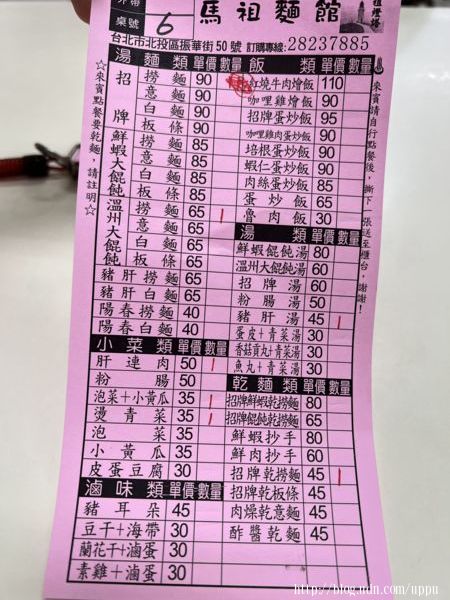 外帶
桌號 6
馬祖麵館
台北市北投區振華街50號 訂購專線:28237885
☆來賓點餐要乾麵,請註明☆
湯麵類 單價 數量
招牌
撈麵 90
意麵 90
白麵 90
板條 90
鮮蝦大餛飩
撈麵 85
意麵 85
白麵 85
板條 85
溫州大餛飩
撈麵 65 1
意麵 65
白麵 65
板條 65
豬肝撈麵 65
豬肝白麵 65
陽春撈麵 40
陽春白麵 40
小菜類 單價 數量
肝連肉 50 1
粉腸 50
泡菜+小黃瓜 35 1
燙青菜 35 1
泡菜 35
小黃瓜 35
皮蛋豆腐 30
滷味類 單價 數量
豬耳朵 45
豆干+海帶 30
蘭花干+滷蛋 30
素雞+滷蛋 30
飯類 單價 數量
紅燒牛肉燴飯 110
咖哩雞燴飯 90
招牌蛋炒飯 95
咖哩雞肉蛋炒飯 90
培根蛋炒飯 90
蝦仁蛋炒飯 90
肉絲蛋炒飯 85
蛋炒飯 65
魯肉飯 30
湯類 單價 數量
鮮蝦餛飩湯 80
溫州大餛飩湯 60
招牌湯 60
粉腸湯 50
豬肝湯 45 1
蛋皮+青菜湯 30
香菇貢丸+青菜湯 30
魚丸+青菜湯 30
乾麵類 單價 數量
招牌鮮蝦乾撈麵 80
招牌餛飩乾撈麵 65
鮮蝦抄手 80
鮮肉抄手 60
招牌乾撈麵 45 1
招牌乾板條 45
肉燥乾意麵 45
酢醬乾麵 45
來賓請自行點餐後,撕下一張送至櫃台,謝謝!
http://blog.udn.com/uppu